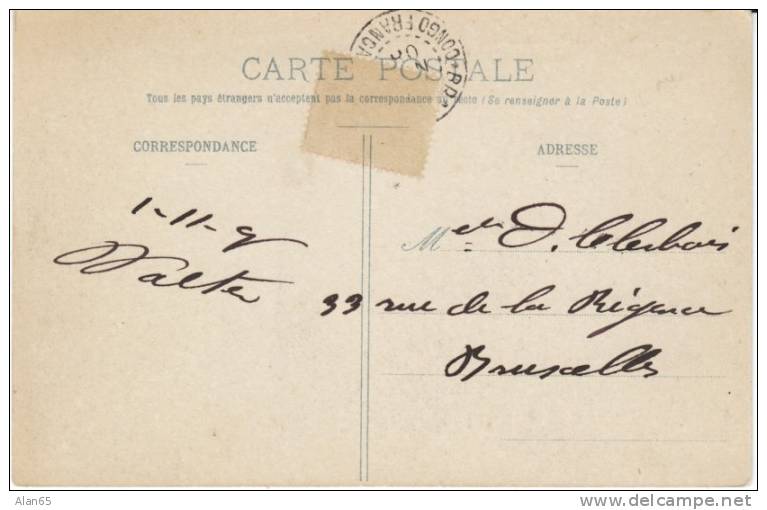 CONGO FRANCA
CARTE POSTALE
Tous les pays étrangers n'acceptent pas la correspondance au recto (Se renseigner à la Poste)
CORRESPONDANCE
ADRESSE
1-11-9
Walter
Melle D. Clerbois
33 rue de la Régence
Bruxelles
Alan65
delcampe.net